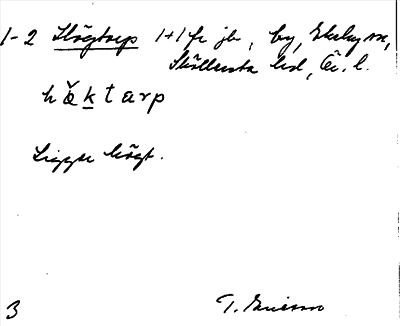 1-2 Högtorp 1+1 fr jb, by, Ekeby sn,
Sköllersta hd, Ör. l.
hǒ̱ḵtarp
Ligger högt.
3 T. Ericsson